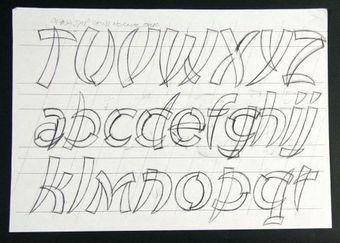 TUVWXYZ
abcdefghij
klmnopqr